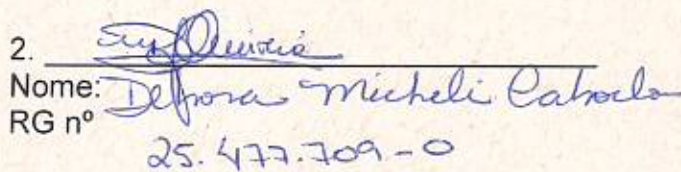 2.
Nome: Debora Micheli Caboclo
RG nº
25.477.709-0